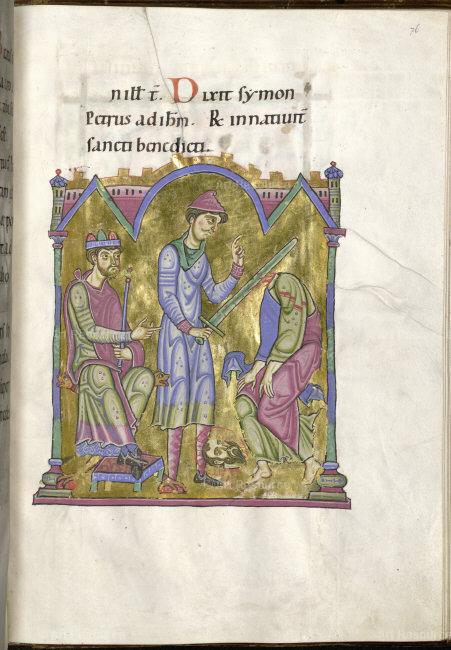 76
nisł t̄. Dixit symon
Petrus ad ihm̄. R̵ In natiuit̄
sancti benedicti.